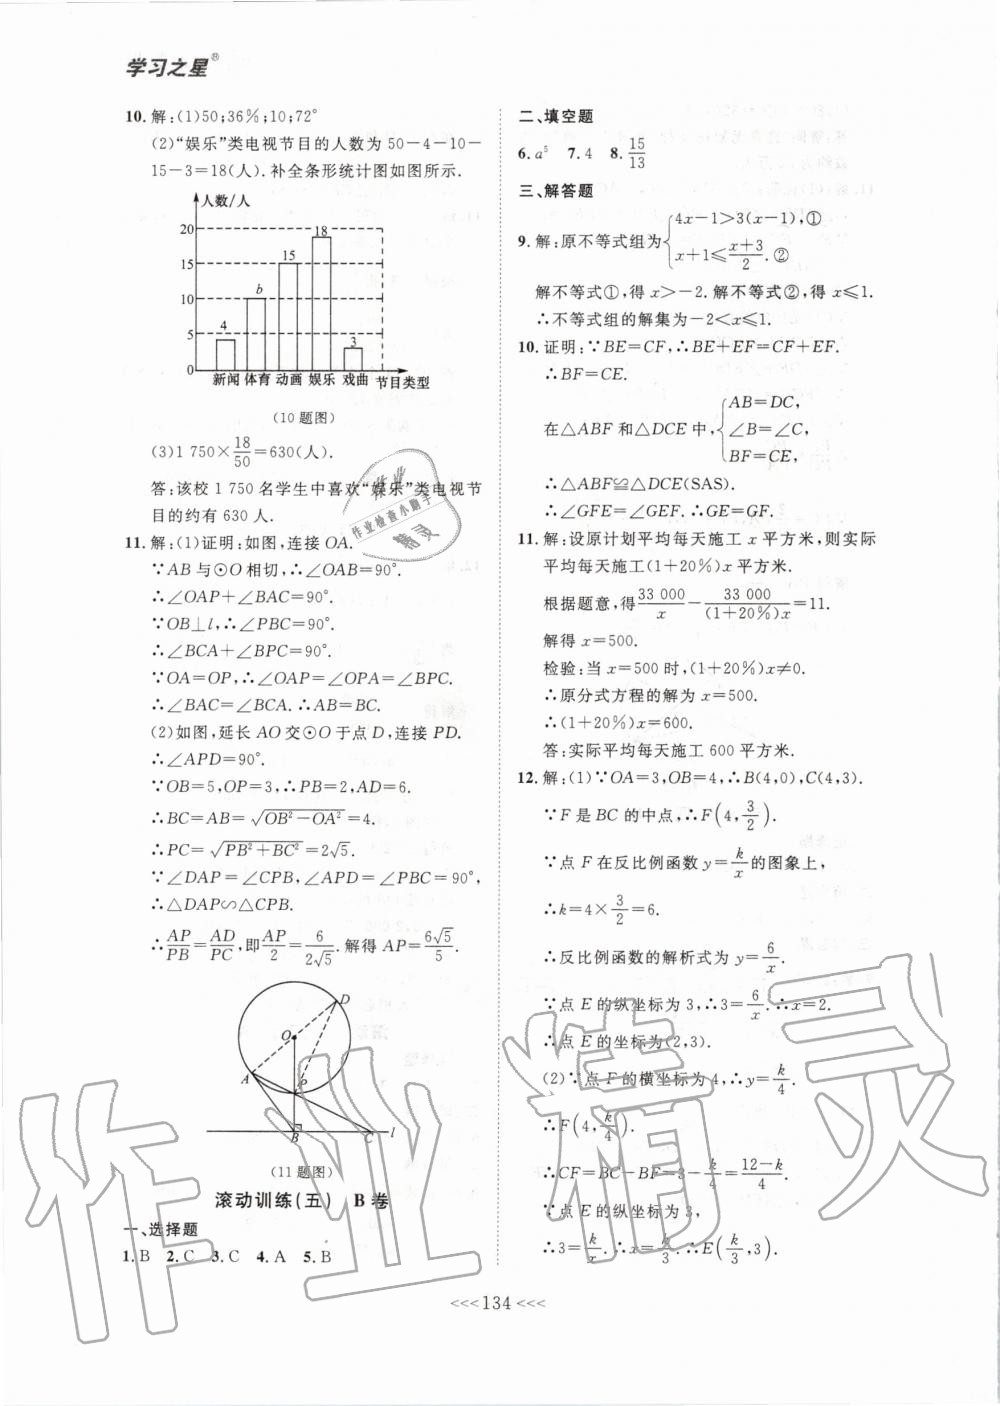 学习之星®
10. 解:(1)50;36%;10;72°
(2)“娱乐”类电视节目的人数为 50－4－10－
15－3＝18(人). 补全条形统计图如图所示.
人数/人
20
15
10
5
0
4
b
15
18
3
新闻 体育 动画 娱乐 戏曲 节目类型
(10 题图)
(3)1 750×18/50＝630(人).
答:该校 1 750 名学生中喜欢“娱乐”类电视节
目的约有 630 人.
11. 解:(1)证明:如图,连接 OA.
∵AB 与⊙O 相切,∴∠OAB＝90°.
∴∠OAP＋∠BAC＝90°.
∵OB⊥l,∴∠PBC＝90°.
∴∠BCA＋∠BPC＝90°.
∵OA＝OP,∴∠OAP＝∠OPA＝∠BPC.
∴∠BAC＝∠BCA. ∴AB＝BC.
(2)如图,延长 AO 交⊙O 于点 D,连接 PD.
∴∠APD＝90°.
∵OB＝5,OP＝3,∴PB＝2,AD＝6.
∴BC＝AB＝√(OB²－OA²)＝4.
∴PC＝√(PB²＋BC²)＝2√5.
∵∠DAP＝∠CPB,∠APD＝∠PBC＝90°,
∴△DAP∽△CPB.
∴AP/PB＝AD/PC,即AP/2＝6/2√5. 解得 AP＝6√5/5.
D
O
A
P
B
C
l
(11 题图)
滚动训练(五) B 卷
一、选择题
1. B 2. C 3. C 4. A 5. B
二、填空题
6. a⁵ 7. 4 8. 15/13
三、解答题
9. 解:原不等式组为{4x－1＞3(x－1),①
x＋1≤x＋3/2. ②
解不等式①,得 x＞－2. 解不等式②,得 x≤1.
∴不等式组的解集为－2＜x≤1.
10. 证明:∵BE＝CF,∴BE＋EF＝CF＋EF.
∴BF＝CE.
在△ABF 和△DCE 中,{AB＝DC,
∠B＝∠C,
BF＝CE,
∴△ABF≌△DCE(SAS).
∴∠GFE＝∠GEF. ∴GE＝GF.
11. 解:设原计划平均每天施工 x 平方米,则实际
平均每天施工(1＋20%)x 平方米.
根据题意,得33 000/x－33 000/(1＋20%)x＝11.
解得 x＝500.
检验:当 x＝500 时,(1＋20%)x≠0.
∴原分式方程的解为 x＝500.
∴(1＋20%)x＝600.
答:实际平均每天施工 600 平方米.
12. 解:(1)∵OA＝3,OB＝4,∴B(4,0),C(4,3).
∵F 是 BC 的中点,∴F(4,3/2).
∵点 F 在反比例函数 y＝k/x的图象上,
∴k＝4×3/2＝6.
∴反比例函数的解析式为 y＝6/x.
∵点 E 的纵坐标为 3,∴3＝6/x. ∴x＝2.
∴点 E 的坐标为(2,3).
(2)∵点 F 的横坐标为 4,∴y＝k/4.
∴F(4,k/4).
∴CF＝BC－BF＝3－k/4＝12－k/4.
∵点 E 的纵坐标为 3,
∴3＝k/x. ∴x＝k/3. ∴E(k/3,3).
<<<134<<<
作业
作业检查小助手
精灵
作业精灵